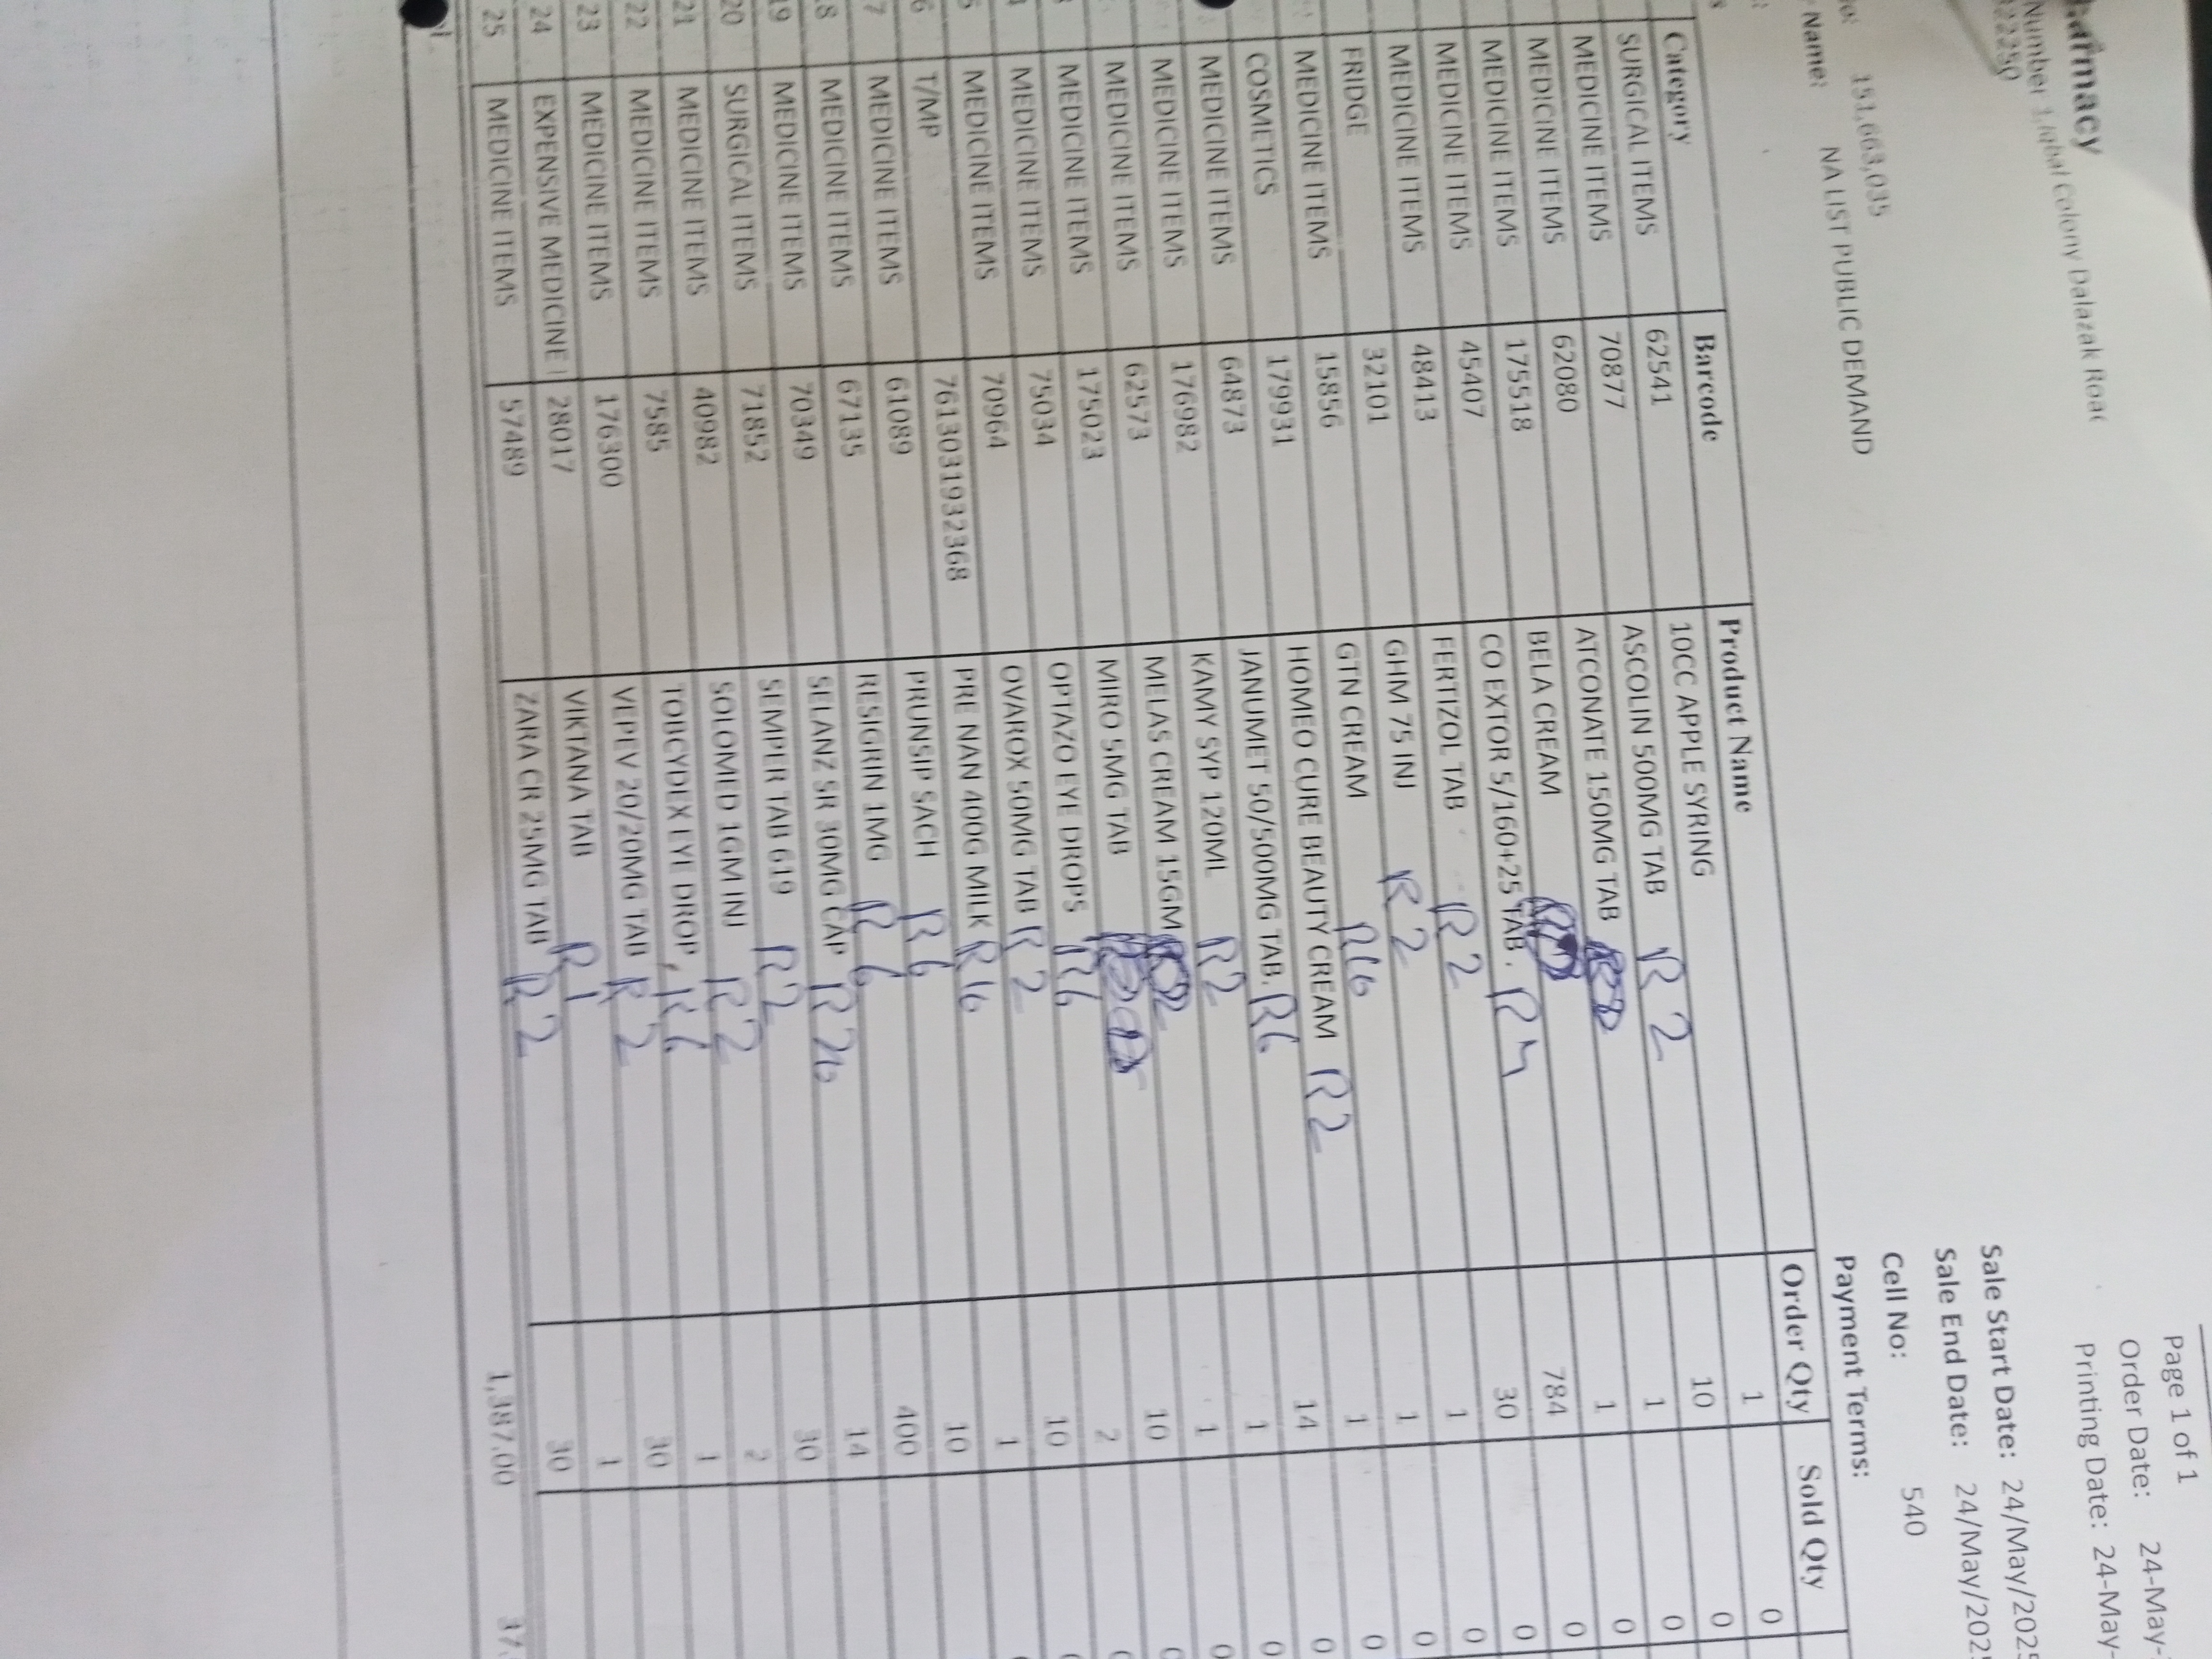 Number 1,Iqbal Colony Dalazak Road
Page 1 of 1
Order Date: 24-May-
Printing Date: 24-May-
Sale Start Date: 24/May/2025
151,663,035 Sale End Date: 24/May/2025
Name: NA LIST PUBLIC DEMAND Cell No: 540
Payment Terms:
Category Barcode Product Name Order Qty Sold Qty
SURGICAL ITEMS 62541 10CC APPLE SYRING 1 0
MEDICINE ITEMS 70877 ASCOLIN 500MG TAB R 2 10 0
MEDICINE ITEMS 62080 ATCONATE 150MG TAB 1 0
MEDICINE ITEMS 175518 BELA CREAM 1 0
MEDICINE ITEMS 45407 CO EXTOR 5/160+25 TAB. 784 0
MEDICINE ITEMS 48413 FERTIZOL TAB R 2 30 0
FRIDGE 32101 GHM 75 INJ R 2 1 0
MEDICINE ITEMS 15856 GTN CREAM R16 1 0
COSMETICS 179931 HOMEO CURE BEAUTY CREAM R2 1 0
MEDICINE ITEMS 64873 JANUMET 50/500MG TAB. R6 14 0
MEDICINE ITEMS 176982 KAMY SYP 120ML R2 1 0
MEDICINE ITEMS 62573 MELAS CREAM 15GM 1 0
MEDICINE ITEMS 175023 MIRO 5MG TAB 10
MEDICINE ITEMS 75034 OPTAZO EYE DROPS R6 2
MEDICINE ITEMS 70964 OVAROX 50MG TAB R 2 10
T/MP 7613031932368 PRE NAN 400G MILK R16 1
MEDICINE ITEMS 61089 PRUNSIP SACH R6 10
MEDICINE ITEMS 67135 RESIGRIN 1MG R 6 400
19 MEDICINE ITEMS 70349 SELANZ SR 30MG CAP R 26 14
20 SURGICAL ITEMS 71852 SEMPER TAB 6 19 R2 30
21 MEDICINE ITEMS 40982 SOLOMED 1GM INJ R2 2
22 MEDICINE ITEMS 7585 TOBCYDEX EYE DROP, R6 1
23 MEDICINE ITEMS 176300 VEPEV 20/20MG TAB R 2 30
24 EXPENSIVE MEDICINE I 28017 VIKTANA TAB R1 1
25 MEDICINE ITEMS 57489 ZARA CR 25MG TAB R 2 30
1,387.00